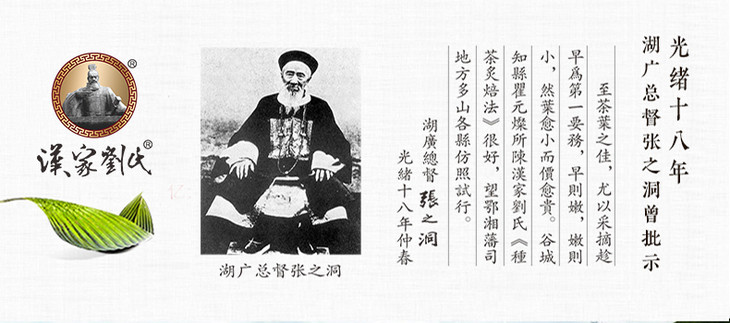 光绪十八年
湖广总督张之洞曾批示
至茶葉之佳，尤以采摘趁
早爲第一要務，早則嫩，嫩則
小，然葉愈小而價愈貴。谷城
知縣瞿元燦所陳漢家劉氏《種
茶炙焙法》很好，望鄂湘藩司
地方多山各縣仿照試行。
湖廣總督 張之洞
光緒十八年仲春
湖广总督张之洞
®
漢家劉氏®